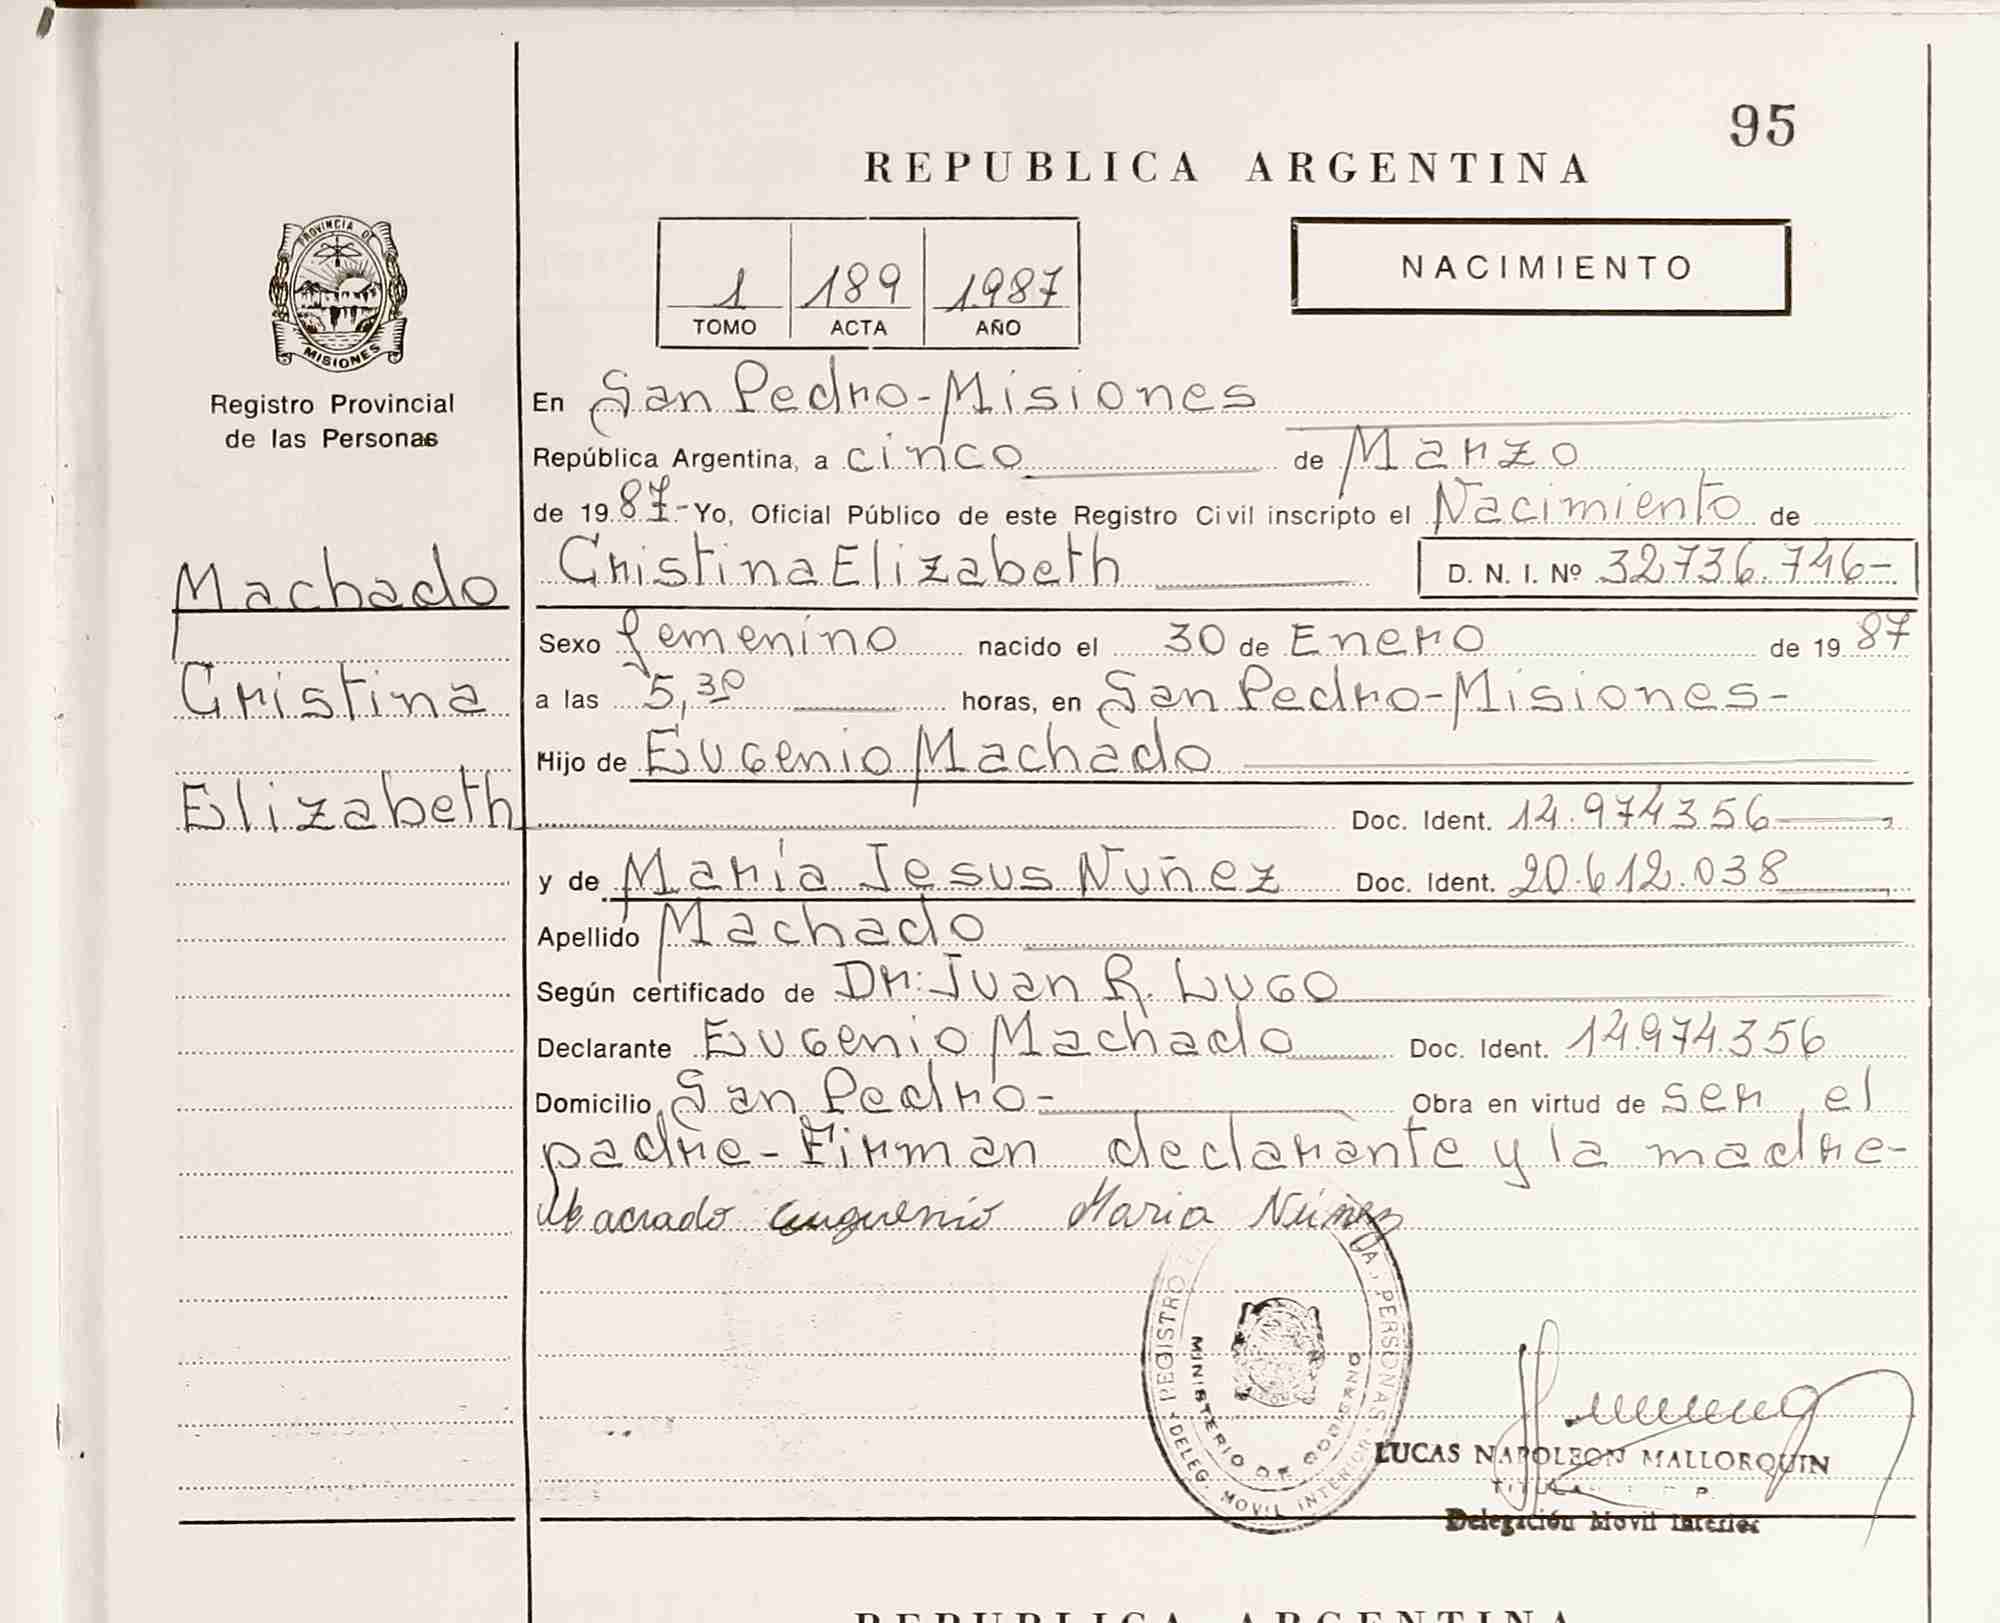 95
REPUBLICA ARGENTINA
NACIMIENTO
1 189 1987
TOMO ACTA AÑO
PROVINCIA DE
MISIONES
Registro Provincial
de las Personas
Machado
Cristina
Elizabeth
En San Pedro-Misiones
República Argentina, a cinco de Marzo
de 1987-Yo, Oficial Público de este Registro Civil inscripto el Nacimiento de
Cristina Elizabeth D. N. I. Nº 32.736.746-
Sexo femenino nacido el 30 de Enero de 1987
a las 5,30 horas, en San Pedro-Misiones-
Hijo de Eugenio Machado
Doc. Ident. 14.974.356
y de María Jesus Nuñez Doc. Ident. 20.612.038
Apellido Machado
Según certificado de Dr: Juan R. Lugo
Declarante Eugenio Machado Doc. Ident. 14.974.356
Domicilio San Pedro- Obra en virtud de ser el
padre-Firman declarante y la madre-
Maria Núñez
REGISTRO PERSONAS
MINISTERIO DE GOBIERNO
DELEG. MOVIL INTERIOR
LUCAS NAPOLEON MALLORQUIN
Delegación Movil Interior
REPUBLICA ARGENTINA